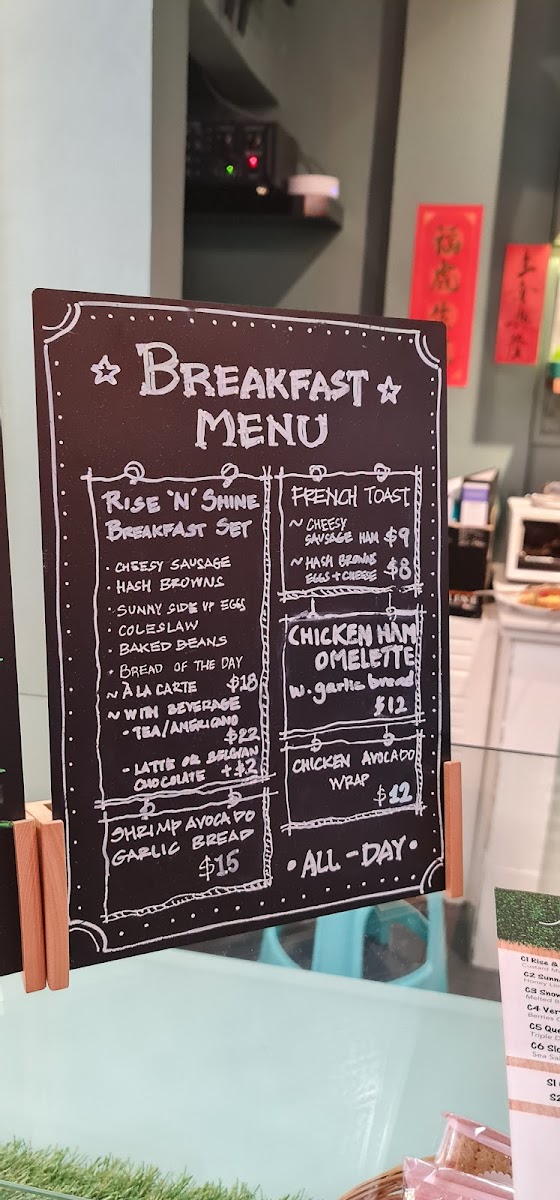 BREAKFAST
MENU
RISE 'N' SHINE
BREAKFAST SET
· CHEESY SAUSAGE
· HASH BROWNS
· SUNNY SIDE UP EGGS
· COLESLAW
· BAKED BEANS
· BREAD OF THE DAY
~ À LA CARTE $18
~ WITH BEVERAGE
- TEA/AMERICANO
$22
- LATTE OR BELGIAN
CHOCOLATE +$2
SHRIMP AVOCADO
GARLIC BREAD
$15
FRENCH TOAST
~ CHEESY
SAUSAGE HAM $9
~ HASH BROWNS
EGGS + CHEESE $8
CHICKEN HAM
OMELETTE
w. garlic bread
$12
CHICKEN AVOCADO
WRAP
$12
• ALL-DAY •
C1 Rise &
C2 Sunn
C3 Snow
C4 Ver
C5 Que
C6
S1